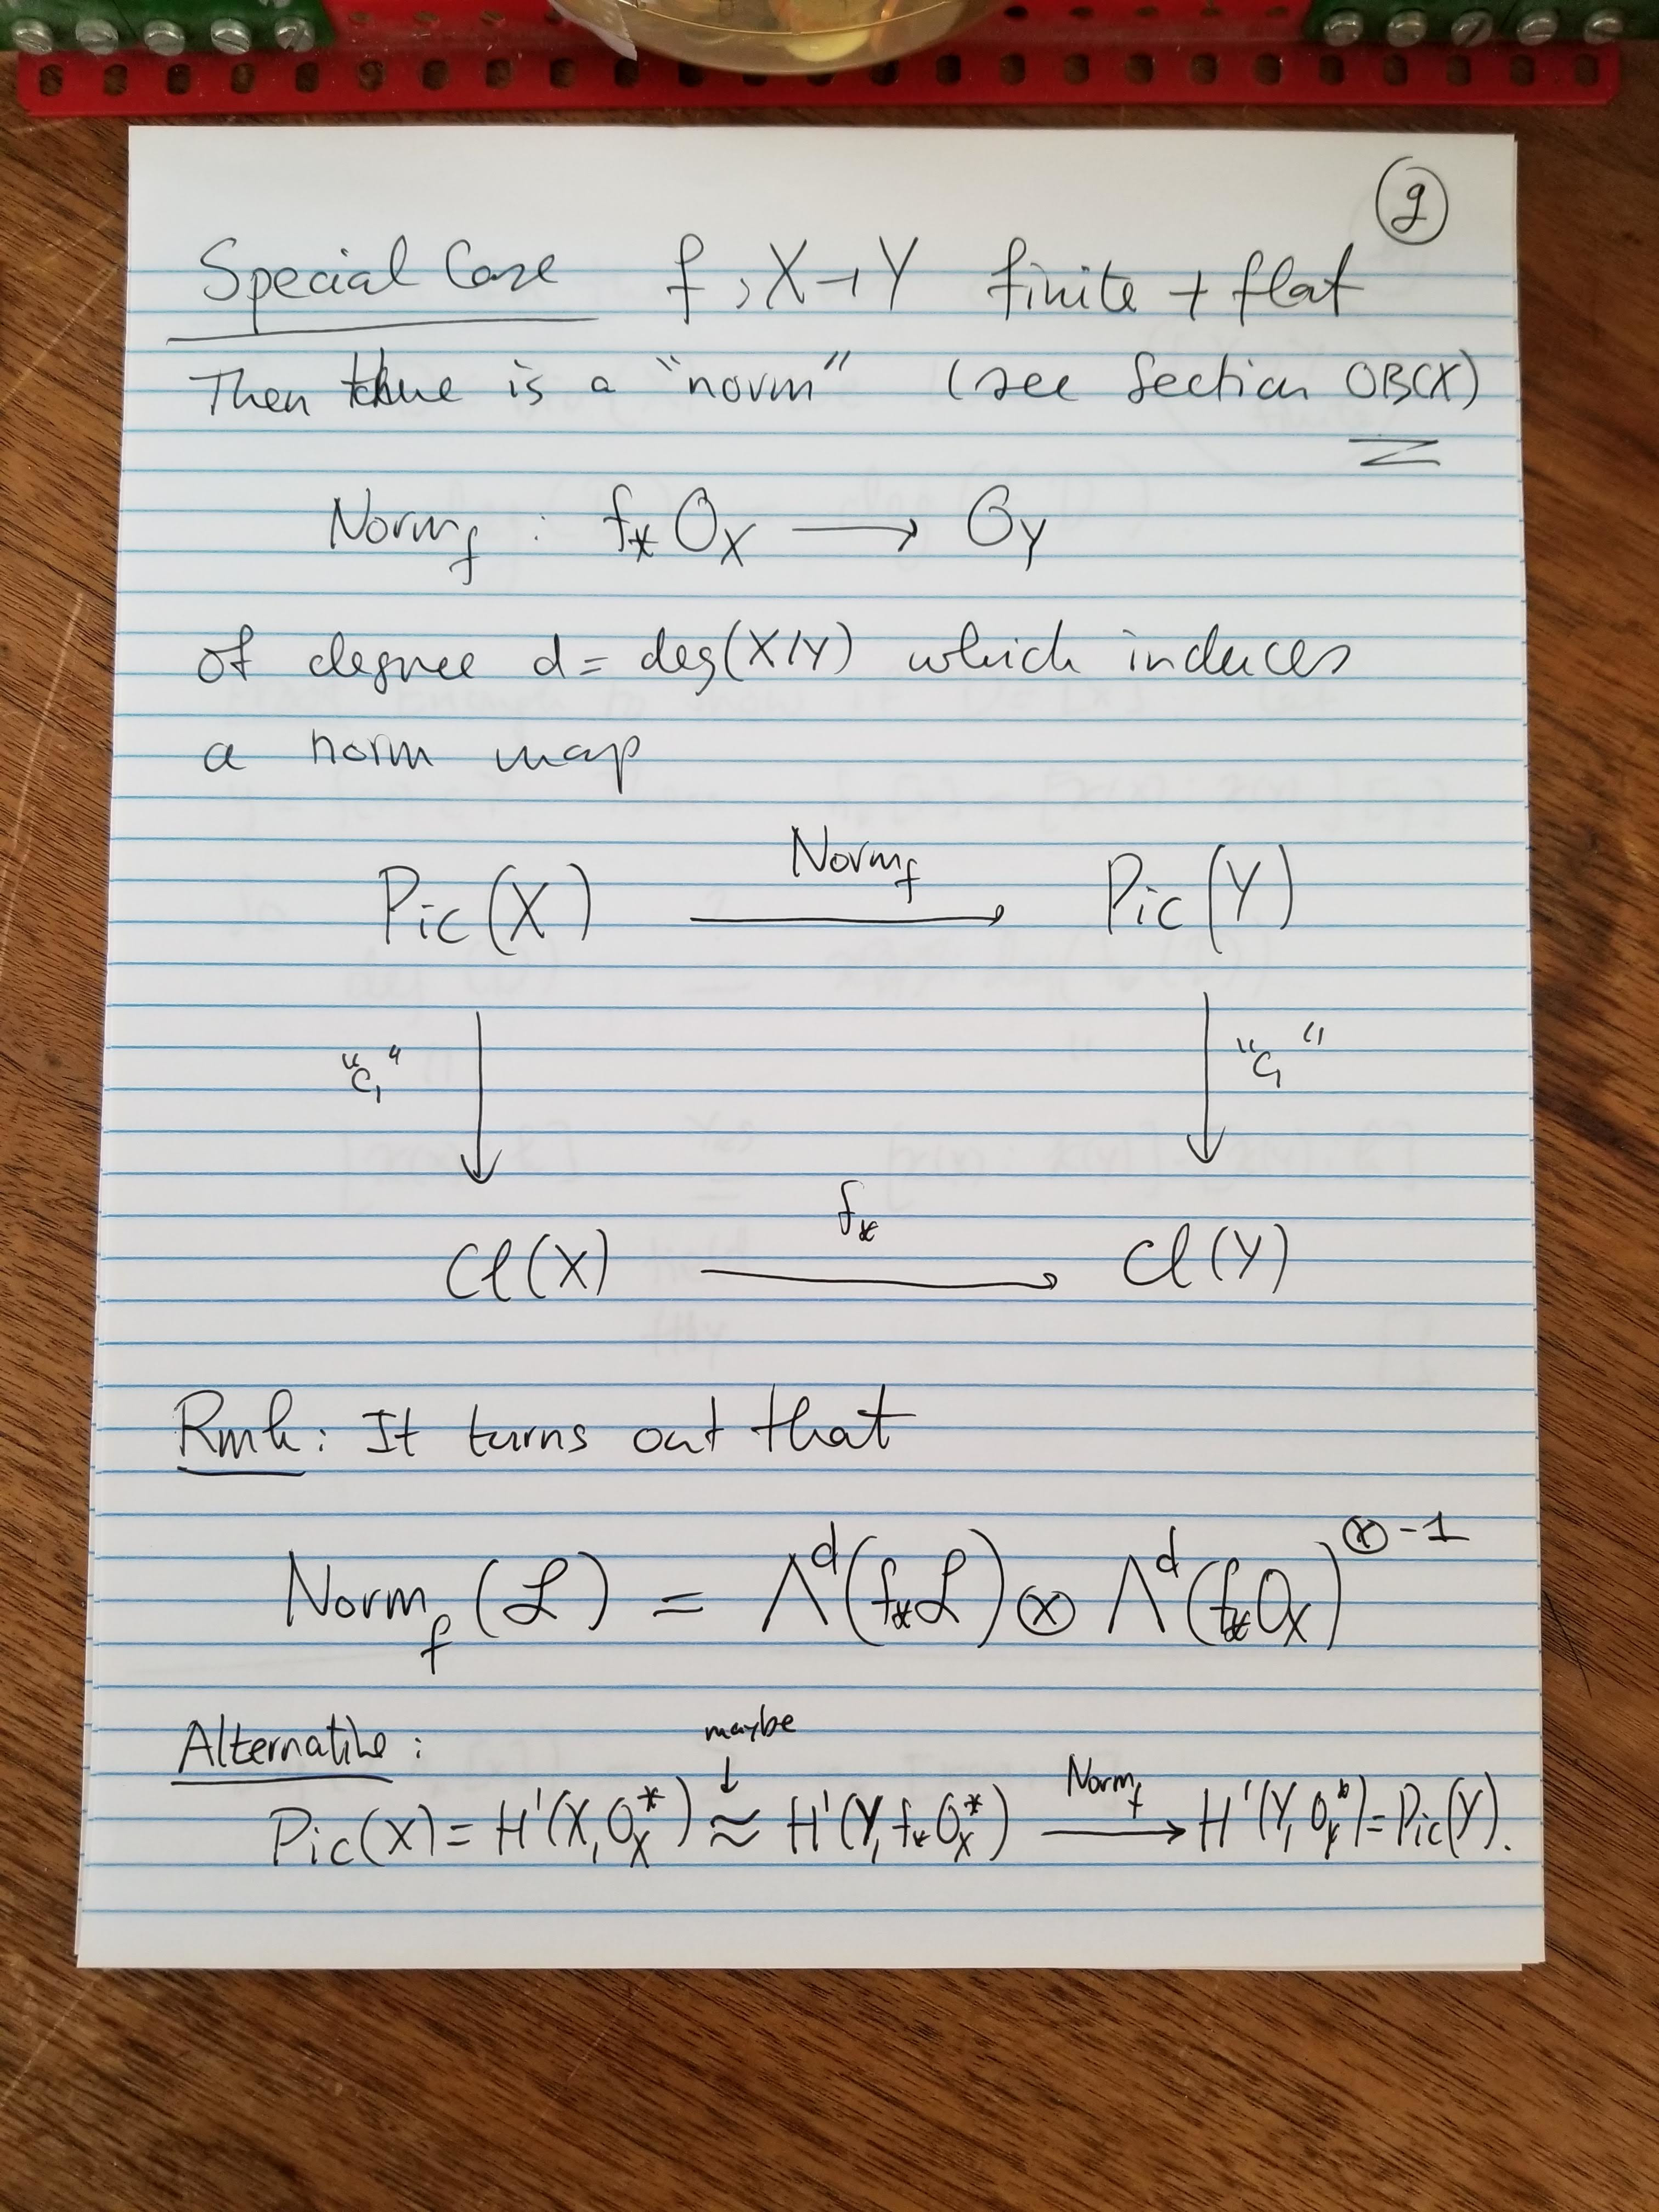 9
Special Case f : X → Y finite + flat
Then there is a "norm" (see Section 0BCX)
Norm_f : f_* O_X ⟶ O_Y
of degree d = deg(X/Y) which induces
a norm map
Pic(X) ⟶ Pic(Y)
Norm_f
"c₁" ↓ ↓ "c₁"
f_*
Cl(X) ⟶ Cl(Y)
Rmk: It turns out that
Norm_f(ℒ) = Λ^d(f_*ℒ) ⊗ Λ^d(f_*O_X)^{⊗-1}
Alternative: maybe ↓
Pic(X) = H¹(X, O_X^*) ≈ H¹(Y, f_*O_X^*) ⟶ H¹(Y, O_Y^*) = Pic(Y).
Norm_f